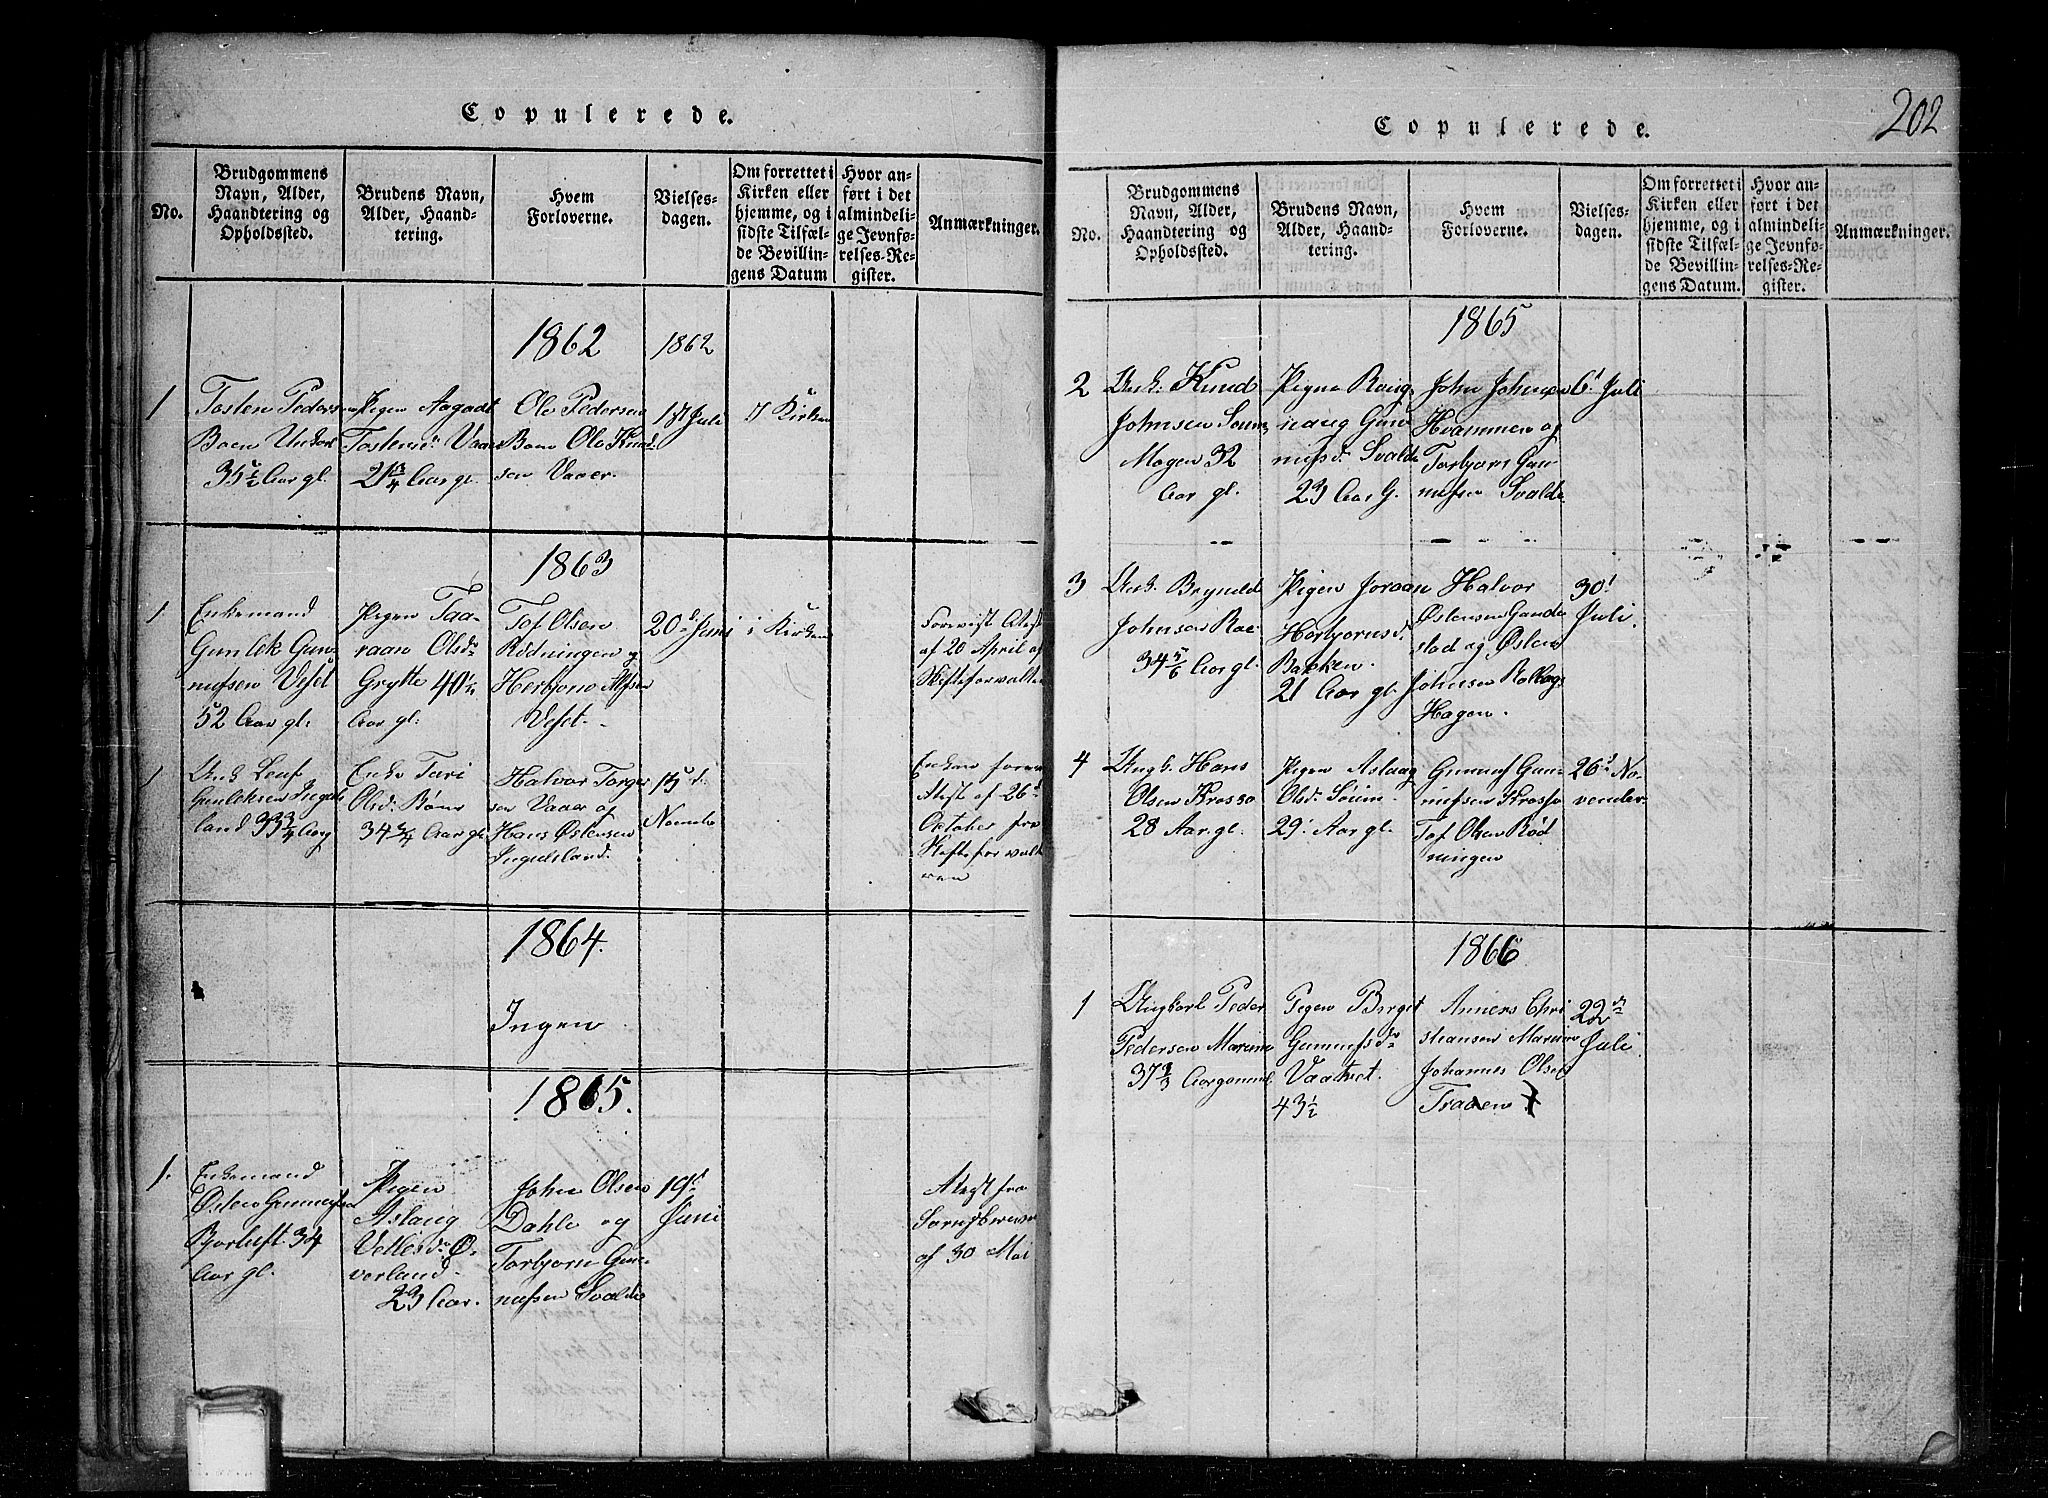 Copulerede.
No.
Brudgommens
Navn, Alder,
Haandtering og
Opholdssted.
Brudens Navn,
Alder, Haand-
tering.
Hvem
Forloverne.
Vielses-
dagen.
Om forrettet i
Kirken eller
hjemme, og i
sidste Tilfæl-
de Bevillin-
gens Datum
Hvor an-
ført i det
almindeli-
ge Jevnfø-
relses-Re-
gister.
Anmærkninger.
1862
1862
1
Tosten Peders
Boen Unkarl
35½ Aar gl.
Pigen Aagaat
Tostensd: Vaa
21¾ Aar gl.
Ole Pedersen
Boen Ole Knud-
sen Vaaer.
Juli
Kirken
1863
1
Enkemand
Gunlek Gun-
nufsen
52 Aar gl.
Pigen Taa-
raan Olsd:
Grytte 40½
Aar gl:
Tof Olsen
Rødningen og
20d Juni
i Kirken
Forevist Atest
af 20 April af
Skifteforvalter
1
Gunleksen
land 33¾ Aar
Enke Turi
Olsd:
34 Aar gl
Halvor Torger
sen Vaaer og
Hans Østensen
Ingulsland.
15d
Novemb
Enken forevi
Atest af 26d
October fra
Skifteforvalt
eren
1864.
Ingen
1865.
1.
Enkemand
Østen Gunnufsen
34
Aar gl.
Pigen
Aslaug
Vetlesd: Ø-
verland
23 Aar.
John Olsen
Dahle og
Torbjørn Gun-
nufsen Svalde
19d
Juni
Atest fra
af 30 Mai
202
Copulerede.
No.
Brudgommens
Navn, Alder,
Haandtering og
Opholdssted.
Brudens Navn,
Alder, Haand-
tering.
Hvem
Forloverne.
Vielses-
dagen.
Om forrettet i
Kirken eller
hjemme, og i
sidste Tilfæl-
de Bevillin-
gens Datum.
Hvor an-
ført i det
almindeli-
ge Jevnfø-
relses-Re-
gister.
Anmærkninger.
1865
2
Unk: Knud
Johnsen
Mogen 32
Aar gl.
Pigen Rang-
naug Gun
nufsd. Svalde
23 Aar G.
John Johnsen
Hvammen og
Torbjørn Gun
nufsen Svalde
6d Juli
3
Unk. Brynuld
Johnsen
34 5/6 Aar gl.
Pigen Joraan
Herbjornsd.
Bakken.
21 Aar gl.
Halvor
Østensen
stad og Østen
Johnsen
Hagen.
30d
Juli.
4
Ungk. Hans
Olsen Krosso
28 Aar gl.
Pigen Aslaug
Olsd: Søum
29 Aar gl.
Gunnuf Gun-
nufsen Krosso
Tof Olsen Rød
ningen
26d No-
vember
1866
1
Ungkarl Peder
Pedersen Marum
37⅔ Aar gammel
Pigen Birgit
Gunnufsd:
43½
Anners Chri
stiansen Marum
Johannes Olsen
22d
Juli.